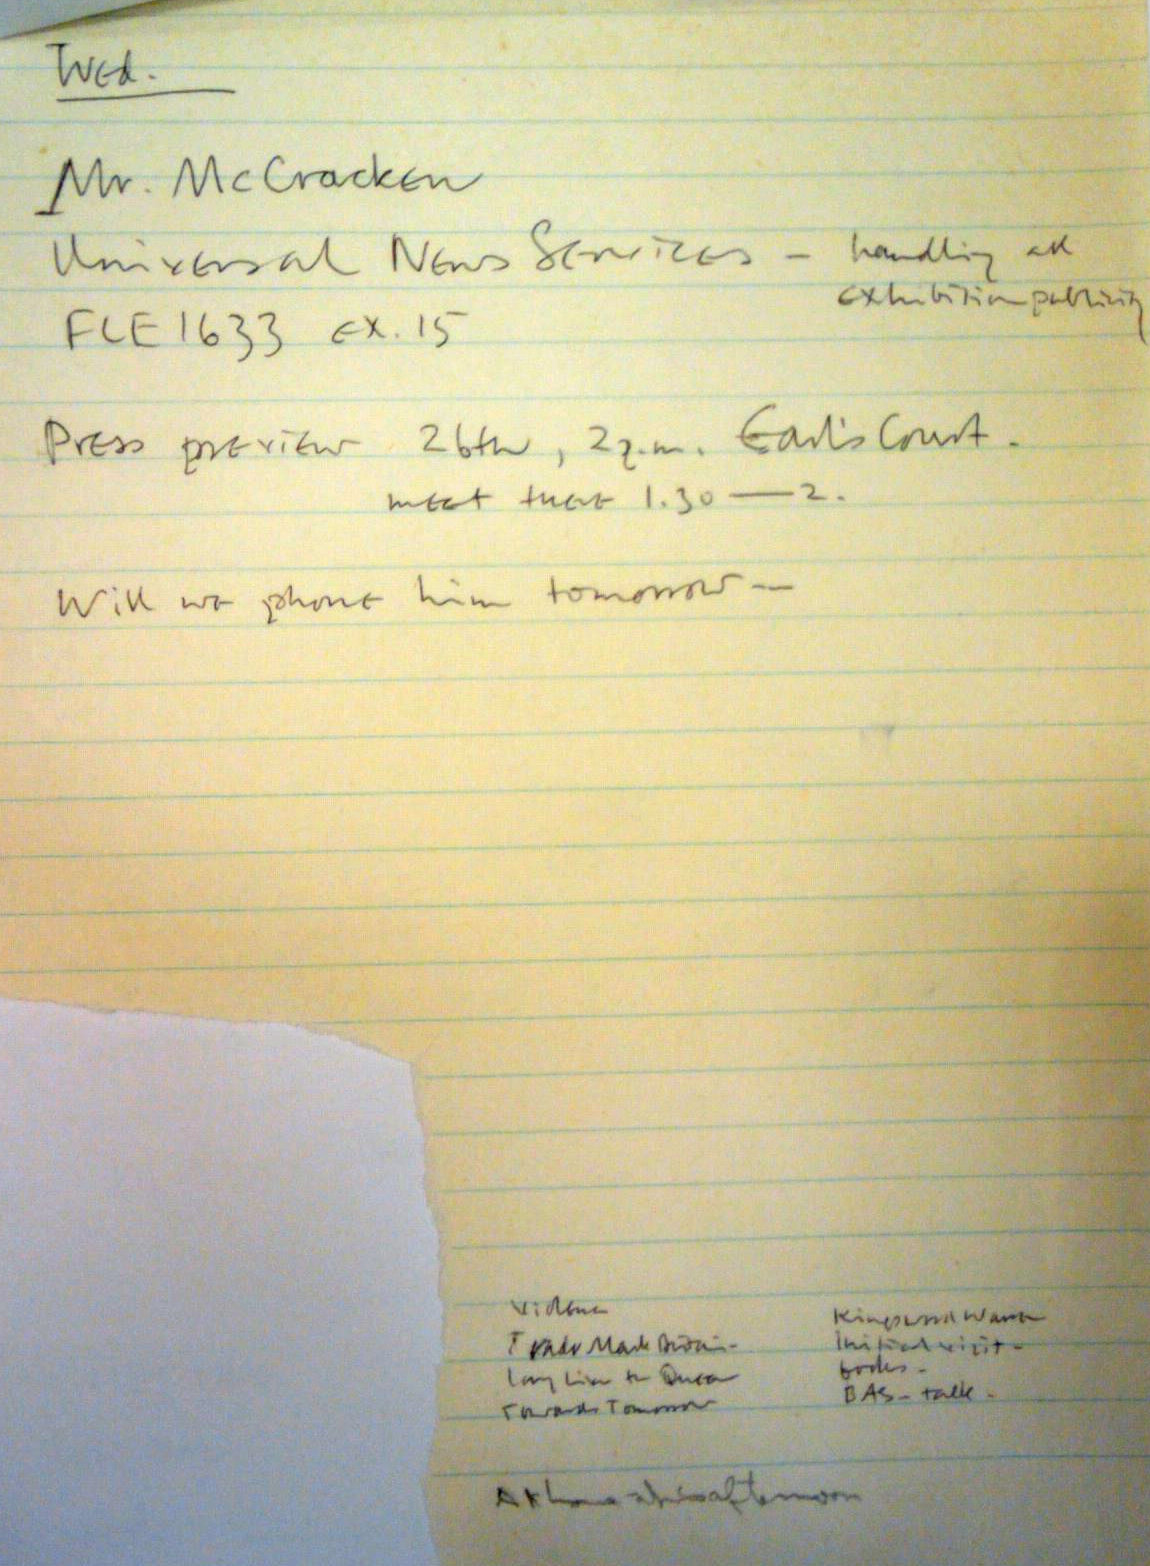 Wed.
Mr. McCracken
Universal News Services – handling all
exhibition publicity
FLE 1633 ex. 15
Press preview 26th, 2 p.m. Earl's Court.
meet there 1.30 — 2.
Will we phone him tomorrow —
Violence
Trade Mark Britain -
Long Live the Queen
Towards Tomorrow
Kingswood Warren
Initial visit -
books -
BAS - talk -
At home this afternoon